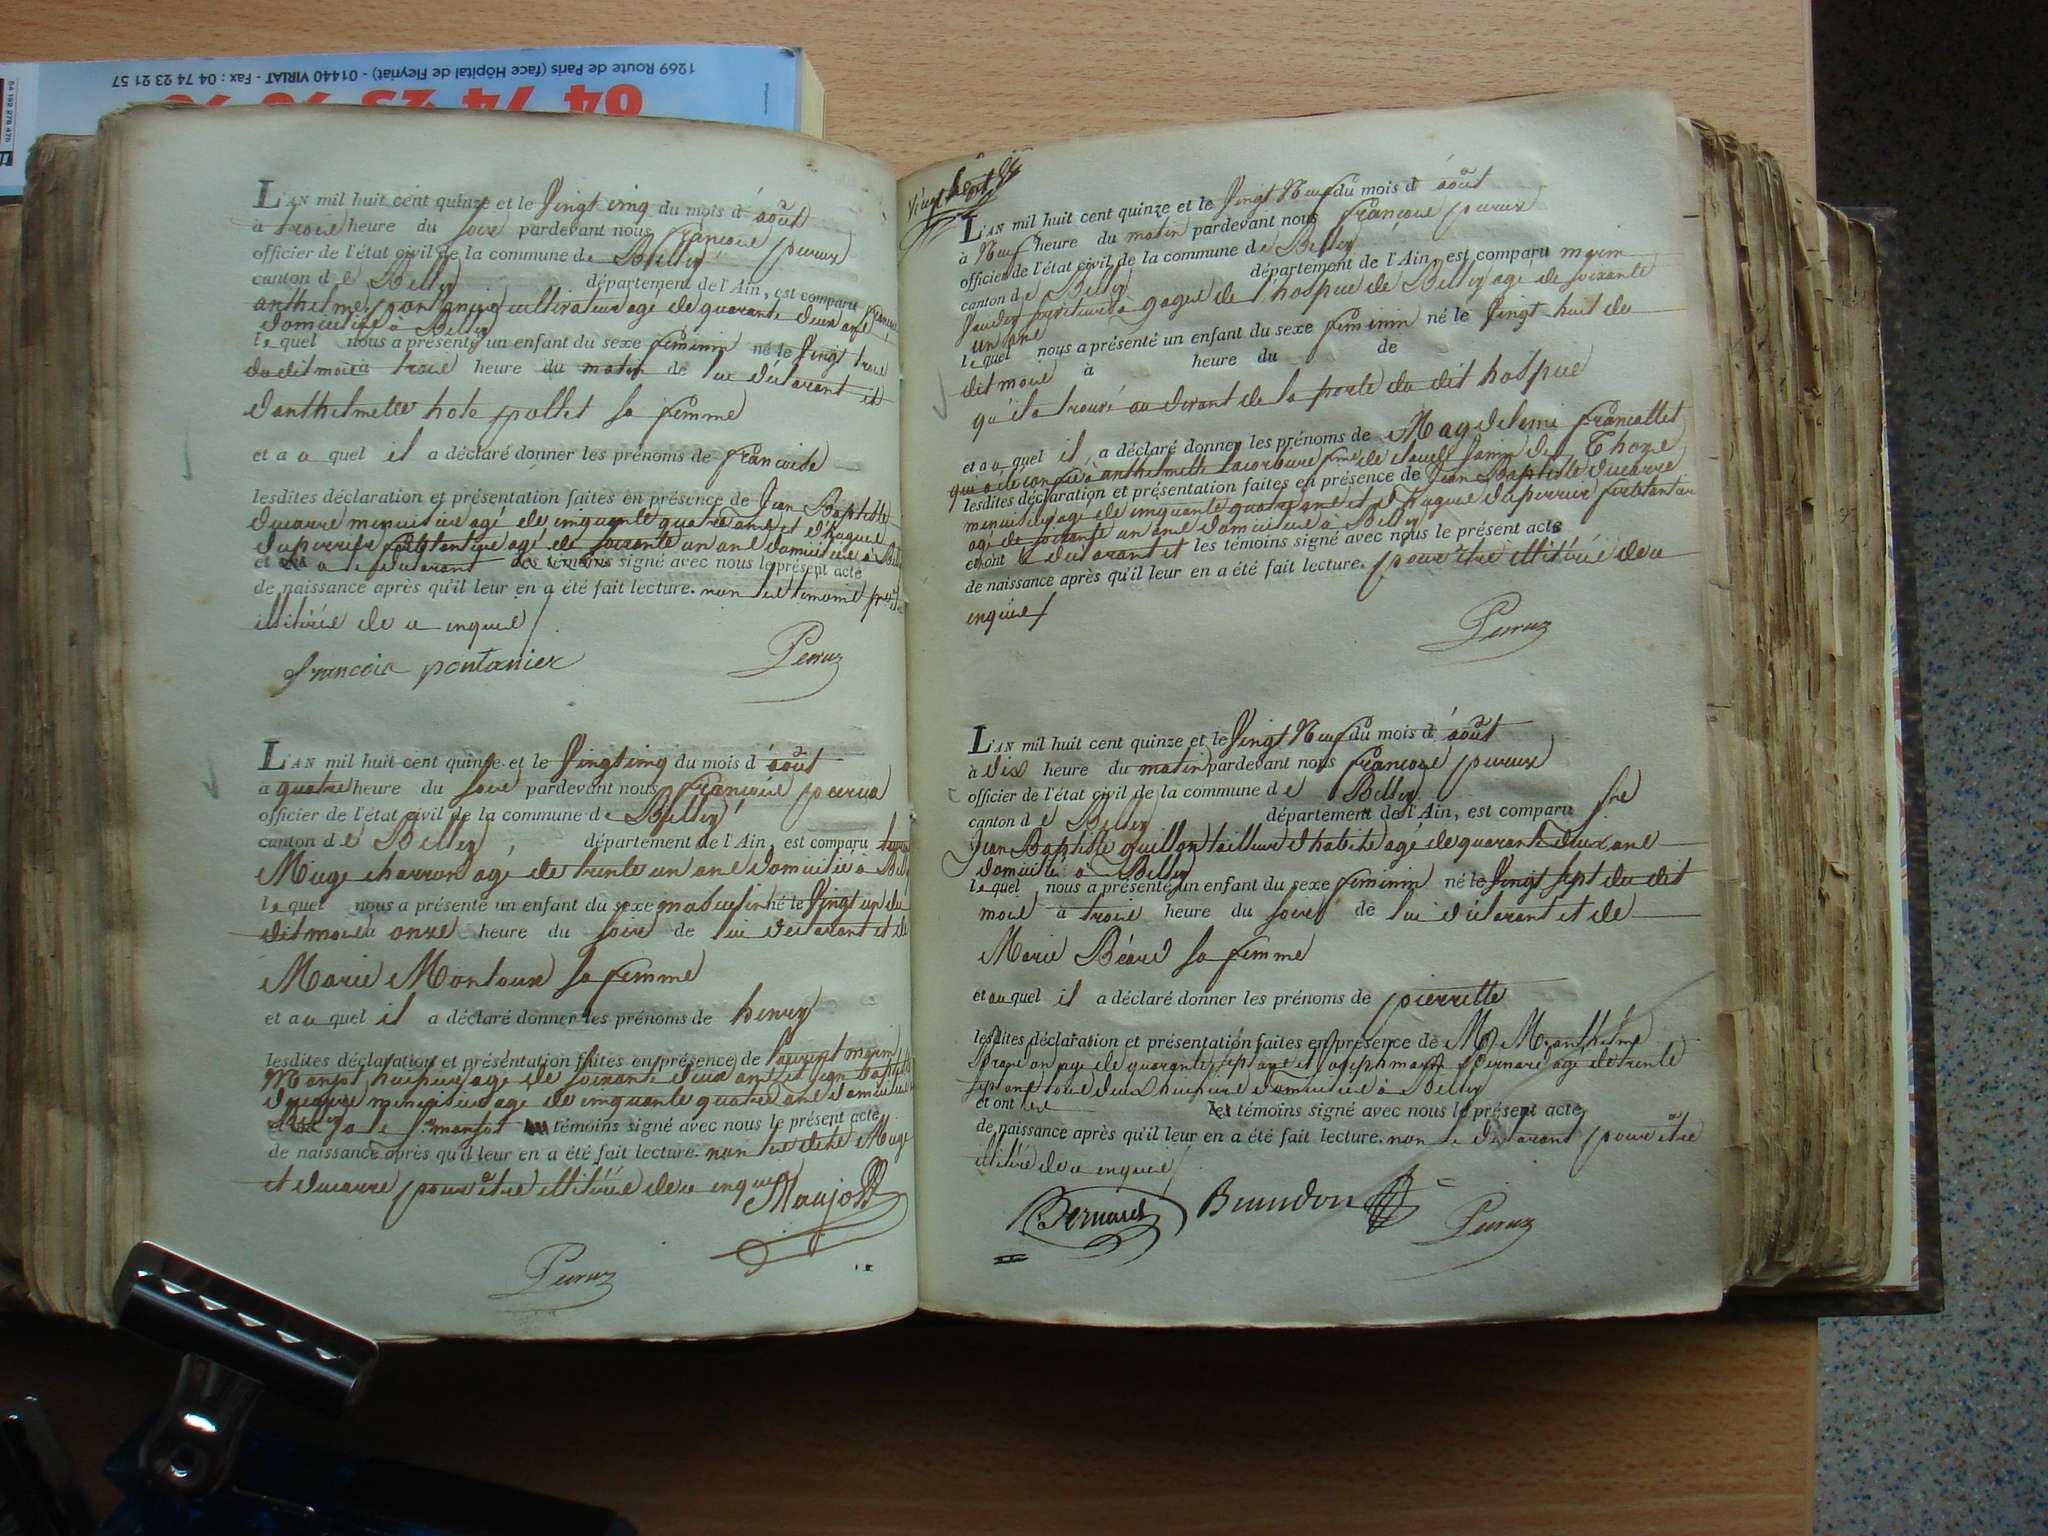 1269 Route de Paris (face Hôpital de Fleyriat) - 01440 VIRIAT - Fax : 04 74 23 21 57
L'AN mil huit cent quinze et le Vingt cinq du mois d'août
a trois heure du soir pardevant nous françois peruz
officier de l'état civil de la commune de Belley
canton de Belley département de l'Ain, est comparu françois
anthelme pontanier cultivateur agé de quarante deux ans
domicilié à Belley
lequel nous a présenté un enfant du sexe feminin né le Vingt trois
du dit mois à trois heure du matin de lui déclarant et
d'anthelmette pollet sa femme
et a u quel il a déclaré donner les prénoms de francoise
lesdites déclaration et présentation faites en présence de Jean Baptiste
ducarre menuisier agé de cinquante quatre ans et d'
duperrier agé de soixante un ans domiciliés à
et a le déclarant des témoins signé avec nous le présent acte
de naissance après qu'il leur en a été fait lecture. non les temoins pour
illitérés de ce enquis
françois pontanier Peruz
L'AN mil huit cent quinze et le Vingt cinq du mois d'août
a quatre heure du soir pardevant nous françois peruz
officier de l'état civil de la commune de Belley
canton de Belley, département de l'Ain, est comparu
Muge charron agé de trente un ans domicilié à
lequel nous a présenté un enfant du sexe masculin né le Vingt un du
dit mois à onze heure du soir de lui déclarant et de
Marie Montoux sa femme
et a u quel il a déclaré donner les prénoms de henry
lesdites déclaration et présentation faites en présence de Laurent marin
Manjot huissier agé de soixante deux ans et jean baptiste
ducarre menuisier agé de cinquante quatre ans domiciliés
a le sr manjot témoins signé avec nous le présent acte
de naissance après qu'il leur en a été fait lecture. non les dits Muge
et ducarre pour être illitérés de ce enquis Manjot
Peruz
Vingt
L'AN mil huit cent quinze et le Vingt Neuf du mois d'août
à Neuf heure du matin pardevant nous françois peruz
officier de l'état civil de la commune de Belley
canton de Belley département de l'Ain, est comparu marin
à gages de l'hospice de Belley agé de soixante
un ans
lequel nous a présenté un enfant du sexe feminin né le Vingt huit du
dit mois à heure du de
qu'il a trouvé au devant de la porte du dit hospice
et a u quel il a déclaré donner les prénoms de Magdeleine francallet
qui a été confié à anthelmette fme de de Thoze
lesdites déclaration et présentation faites en présence de Jean Baptiste ducarre
menuisier agé de cinquante quatre ans et d' duperrier
agé de soixante un ans domiciliés à Belley
et ont le déclarant et les témoins signé avec nous le présent acte
de naissance après qu'il leur en a été fait lecture. pour être illitérés de ce
enquis
Peruz
L'AN mil huit cent quinze et le Vingt Neuf du mois d'août
à dix heure du matin pardevant nous françois peruz
officier de l'état civil de la commune de Belley
canton de Belley département de l'Ain, est comparu
Jean Baptiste guillon tailleur d'habits agé de quarante deux ans
domicilié à Belley
lequel nous a présenté un enfant du sexe feminin né le Vingt sept du dit
mois à trois heure du soir de lui déclarant et de
Marie Béard sa femme
et au quel il a déclaré donner les prénoms de pierrette
lesdites déclaration et présentation faites en présence de M. M. anthelme
agé de quarante sept ans et joseph marie Bernard agé de trente
sept ans tous deux huissiers domiciliés à Belley
et ont les les témoins signé avec nous le présent acte
de naissance après qu'il leur en a été fait lecture. non le déclarant pour être
illitéré de ce enquis
Bernard Peruz